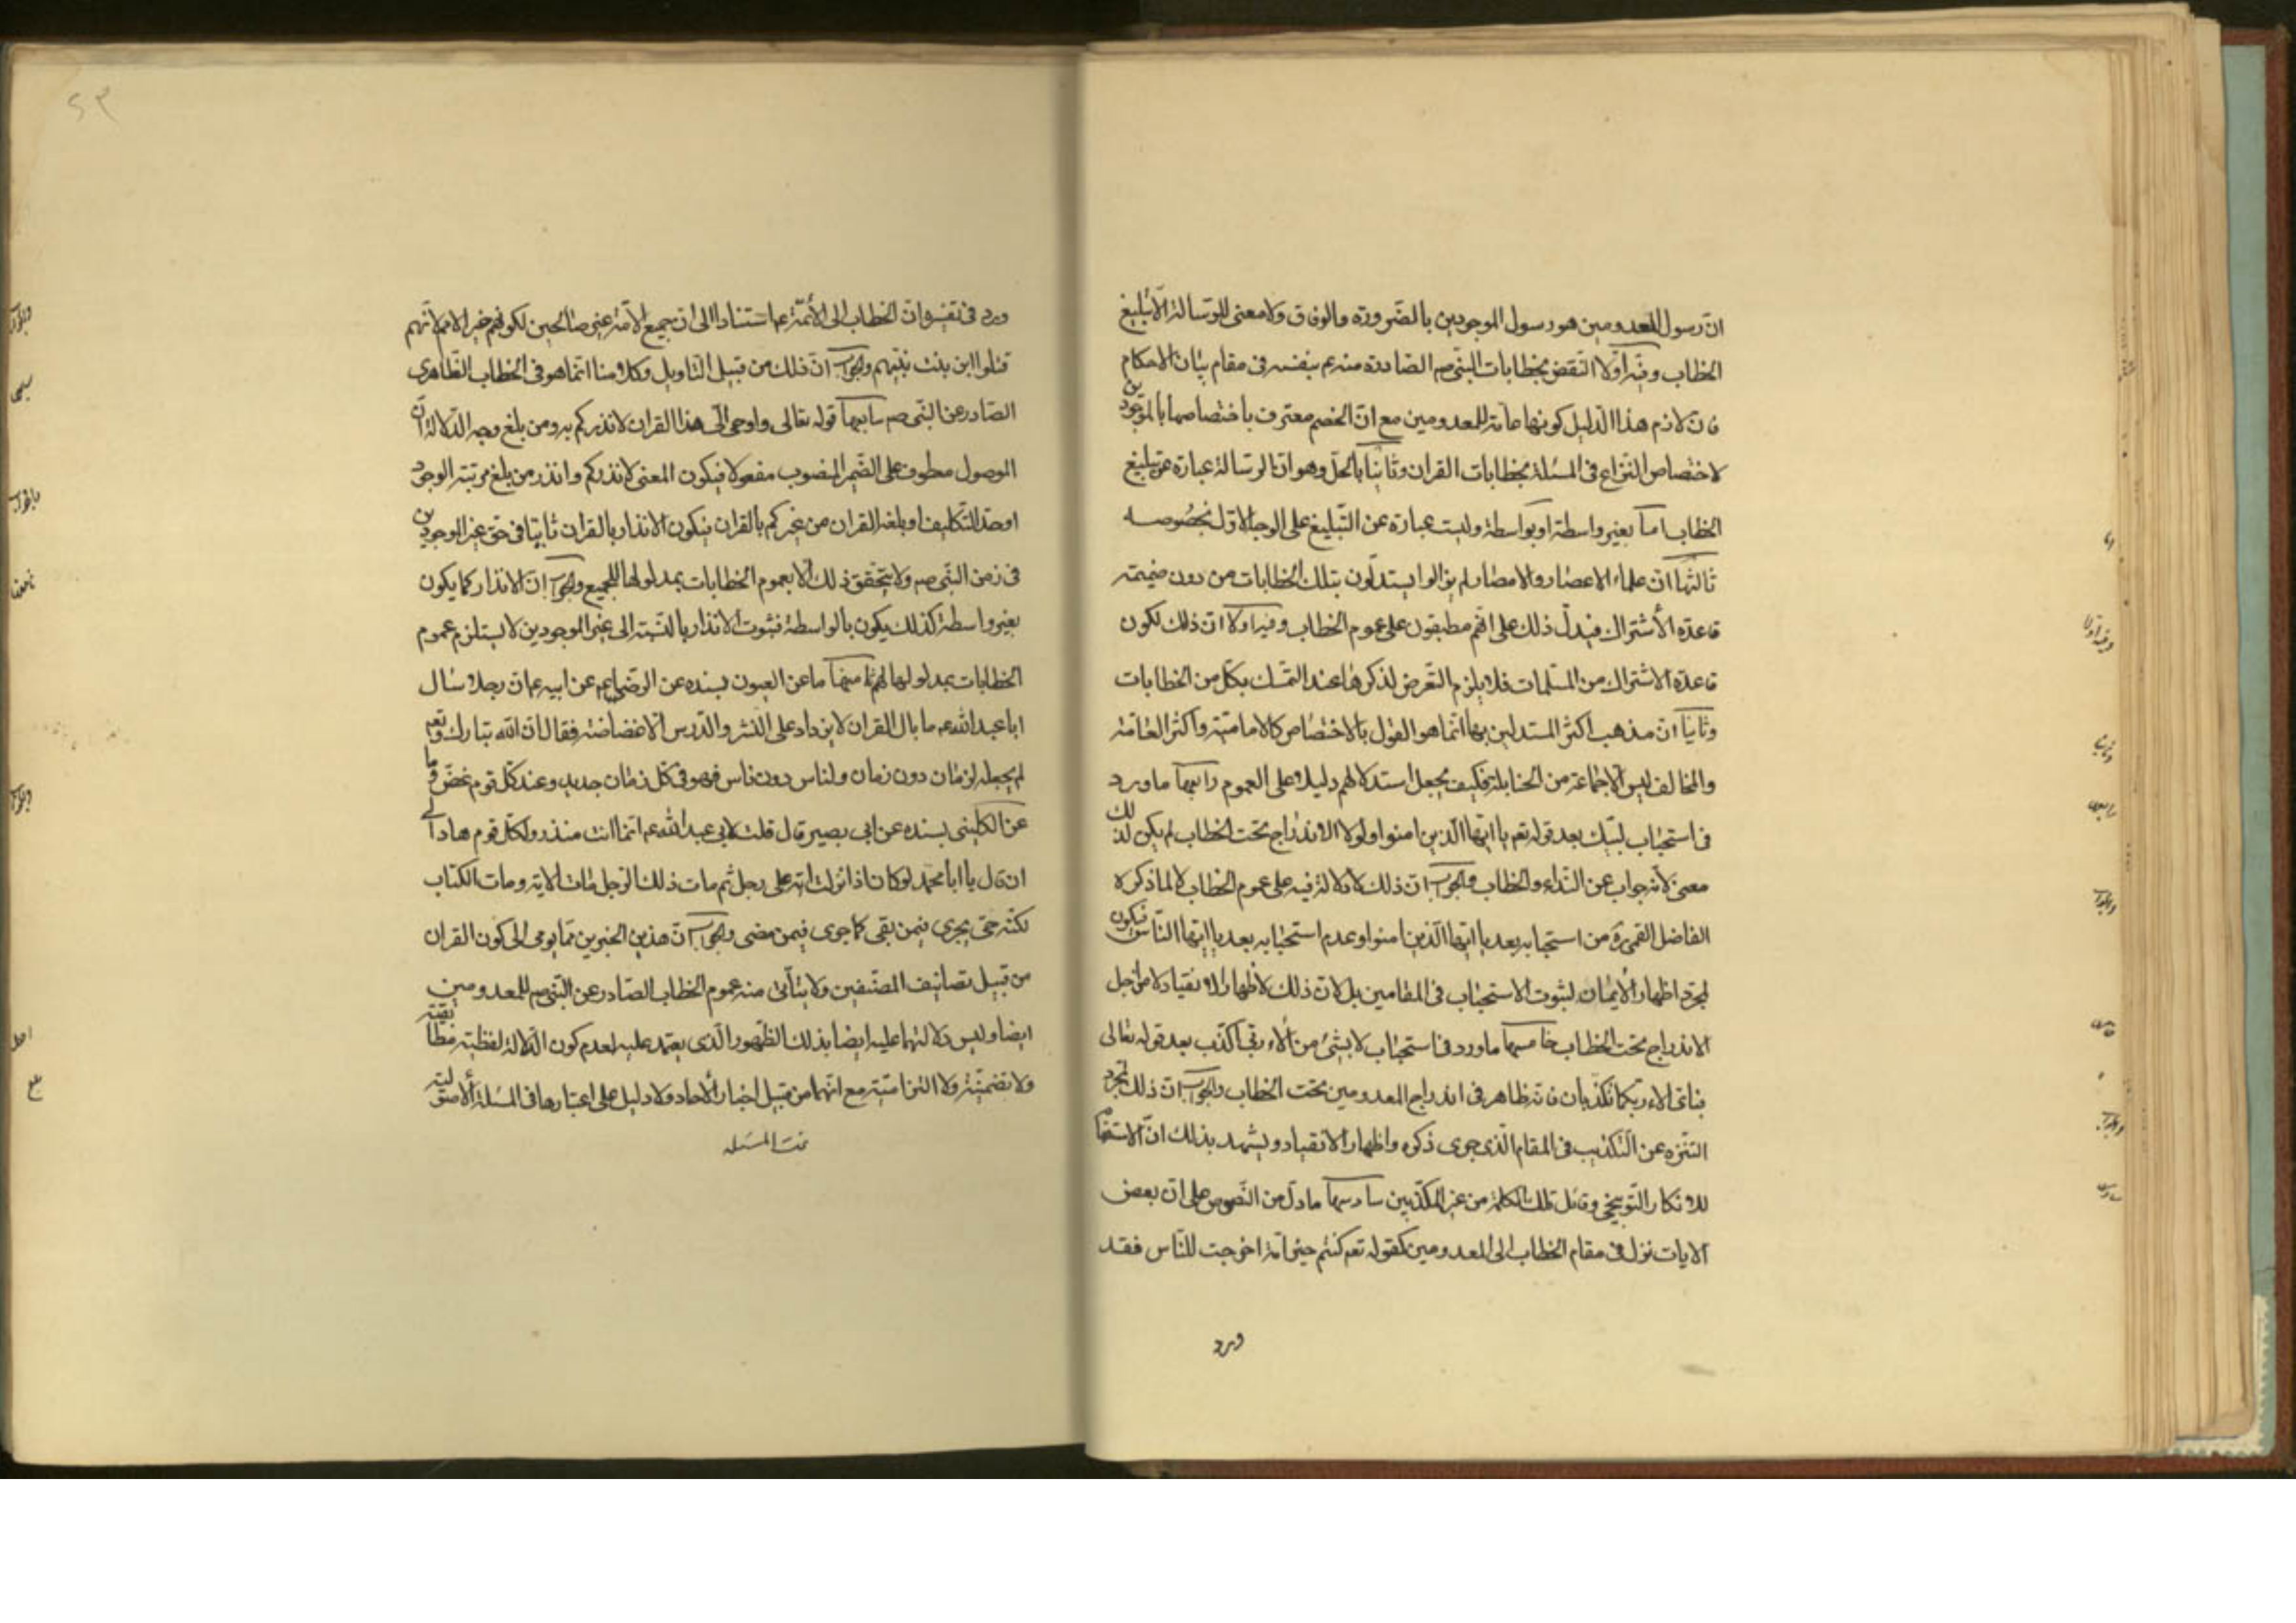 ان رسول المعدومين هو رسول الموجودين بالضرورة والوفاق ولا معنى للرسالة الا تبليغ
الخطاب وفيه اولا النقض بخطابات النبي صم الصادرة منه عم بنفسه في مقام بيان الاحكام
فان لازم هذا الدليل كونها عامة للمعدومين مع ان الخصم معترف باختصاصها بالموجودين
لاختصاص النزاع في المسئلة بخطابات القران وثانيا بالحل وهو ان الرسالة عبارة عن تبليغ
الخطاب اما بغير واسطة او بواسطة وليست عبارة عن التبليغ على الوجه الاول بخصوصه
ثالثها ان علماء الاعصار والامصار لم يزالوا يستدلون بتلك الخطابات من دون ضميمة
قاعدة الاشتراك فيدل ذلك على انهم مطبقون على عموم الخطاب وفيه اولا ان ذلك لكون
قاعدة الاشتراك من المسلمات فلا يلزم التعرض لذكرها عند التمسك بكل من الخطابات
وثانيا ان مذهب اكثر المستدلين بها انما هو القول بالاختصاص كالامامية واكثر العامة
والمخالف ليس الا جماعة من الحنابلة فكيف يجعل استدلالهم دليلا على العموم رابعها ما ورد
في استحباب لبيك بعد قوله تعم يا ايها الذين امنوا ولولا الاندراج تحت الخطاب لم يكن لذلك
معنى لانه جواب عن النداء والخطاب والجواب ان ذلك لا دلالة فيه على عموم الخطاب لا لما ذكره
الفاضل القمي ره من استحبابه بعد يا ايها الذين امنوا وعدم استحبابه بعد يا ايها الناس فيكون
لمجرد اظهار الايمان لثبوت الاستحباب في المقامين بل لان ذلك لاظهار الانقياد لا من اجل
الاندراج تحت الخطاب خامسها ما ورد في استحباب لا بشئ من الاء ربي اكذب بعد قوله تعالى
فباي الاء ربكما تكذبان فانه ظاهر في اندراج المعدومين تحت الخطاب والجواب ان ذلك لمجرد
التنزه عن التكذيب في المقام الذي جرى ذكره واظهار الانقياد ويشهد بذلك ان الاستفهام
للانكار التوبيخي وقائل تلك الكلمة من غير المكذبين سادسها ما دل من النصوص على ان بعض
الايات نزل في مقام الخطاب الى المعدومين كقوله تعم كنتم خير امة اخرجت للناس فقد
ورد
ورد في تفسيره ان الخطاب الى الائمة عم استنادا الى ان جميع الامة غير صالحين لكونهم خير الامم لانهم
قتلوا ابن بنت نبيهم والجواب ان ذلك من قبيل التاويل وكلامنا انما هو في الخطاب الظاهري
الصادر عن النبي صم سابعها قوله تعالى واوحى الى هذا القران لانذركم به ومن بلغ وجه الدلالة ان
الموصول معطوف على الضمير المنصوب مفعولا فيكون المعنى لانذركم وانذر من بلغ مرتبة الوجود
او حد التكليف او بلغه القران من غيركم بالقران فيكون الانذار بالقران ثابتا في حق غير الموجودين
في زمن النبي صم ولا يتحقق ذلك الا بعموم الخطابات بمدلولها للجميع والجواب ان الانذار كما يكون
بغير واسطة كذلك يكون بالواسطة فثبوت الانذار بالنسبة الى غير الموجودين لا يستلزم عموم
الخطابات بمدلولها لهم ثامنها ما عن العيون بسنده عن الرضا عم عن ابيه عم ان رجلا سال
ابا عبد الله عم ما بال القران لا يزداد على النشر والدرس الا غضاضة فقال ان الله تبارك وتعم
لم يجعله لزمان دون زمان ولناس دون ناس فهو في كل زمان جديد وعند كل قوم غض وما
عن الكليني بسنده عن ابي بصير قال قلت لابي عبد الله عم انما انت منذر ولكل قوم هاد الى
ان قال يا ابا محمد لو كان اذا نزلت اية على رجل ثم مات ذلك الرجل ماتت الاية ومات الكتاب
لكنه حي يجري فيمن بقي كما جرى فيمن مضى والجواب ان هذين الخبرين مما يومي الى كون القران
من قبيل تصانيف المصنفين ولا يتاتى منه عموم الخطاب الصادر عن النبي صم للمعدومين
ايضا وليس دلالتهما عليه ايضا بذلك الظهور الذي يعتمد عليه لعدم كون الدلالة لفظية مطابقية
ولا تضمنية ولا التزامية مع انهما من قبيل اخبار الاحاد ولا دليل على اعتبارها في المسئلة الاصولية
تمت المسئله